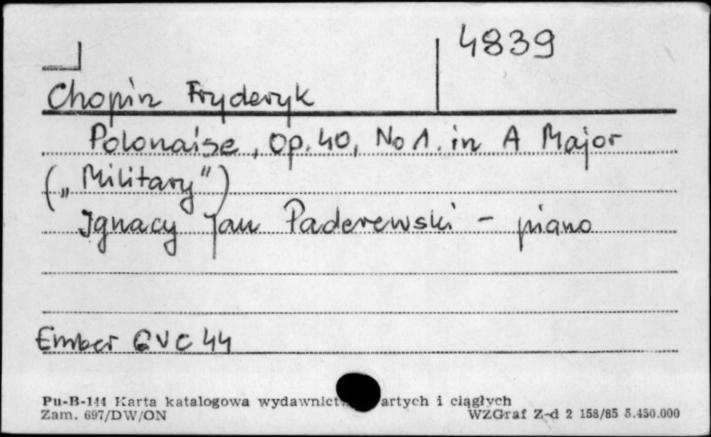 4839
Chopin Fryderyk
Polonaise, Op. 40, No 1. in A Major
(„Military")
Ignacy Jan Paderewski - piano
Ember GVC 44
Pu-B-144 Karta katalogowa wydawnict artych i ciągłych
Zam. 697/DW/ON
WZGraf Z-d 2 158/85 5.450.000